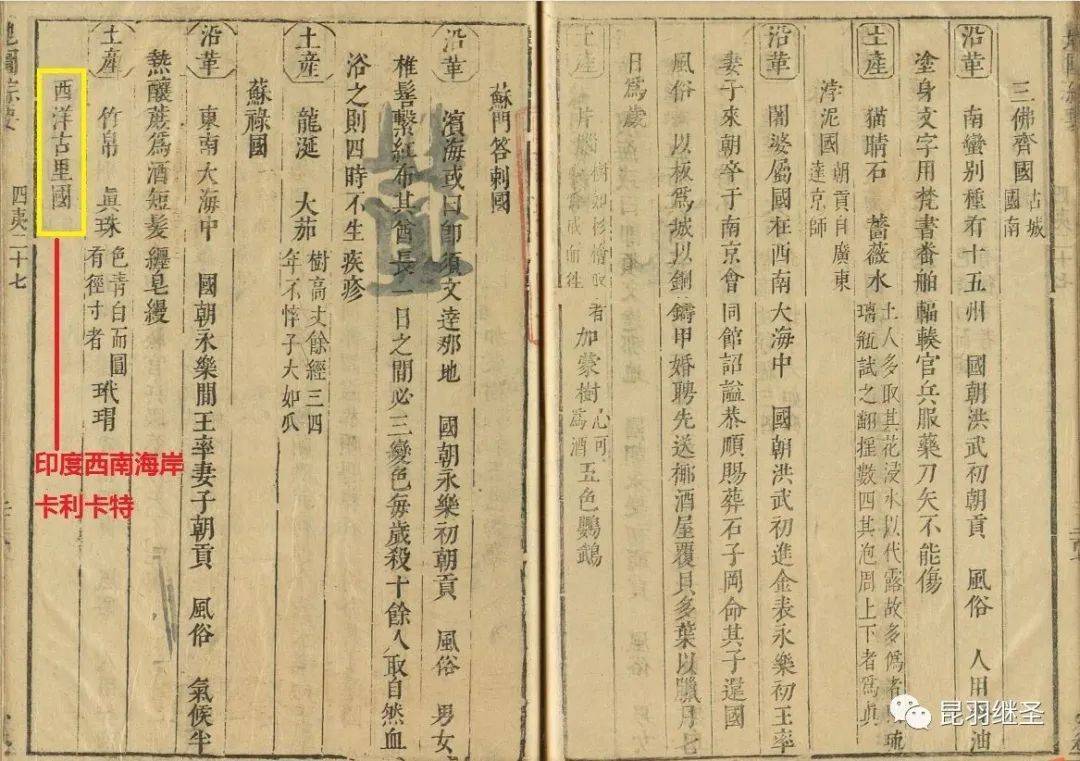 三佛齊國 古城國南
沿革 南蠻別種有十五州 國朝洪武初朝貢 風俗 人用香油
塗身文字用梵書番舶輻輳官兵服藥刀矢不能傷
土產 猫睛石 薔薇水 土人多取其花浸水以代露故多僞者 璃瓶試之翻搖數四其泡周上下者爲眞
浡泥國 朝貢自廣東達京師
沿革 闍婆屬國在西南大海中 國朝洪武初進金表永樂初王率
妻子來朝卒于南京會同館詔謚恭順賜葬石子岡命其子還國
風俗 以板爲城以銅鑄甲婚聘先送椰酒屋覆貝多葉以臘月七
日爲歲
土產 片腦 加蒙樹 心可爲酒 五色鸚鵡
蘇門答剌國
沿革 濱海或曰卽須文達那地 國朝永樂初朝貢 風俗 男女
椎髻繫紅布其酋長一日之間必三變色每歲殺十餘人取自然血
浴之則四時不生疾疹
土產 龍涎 大茄 樹高丈餘經三四年不悴子大如瓜
蘇祿國
沿革 東南大海中 國朝永樂間王率妻子朝貢 風俗 氣候半
熱釀蔗爲酒短髮纏皂縵
土產 竹帛 眞珠 色靑白而圓有徑寸者 玳瑁
西洋古里國
四夷 二十七
印度西南海岸
卡利卡特
昆羽继圣